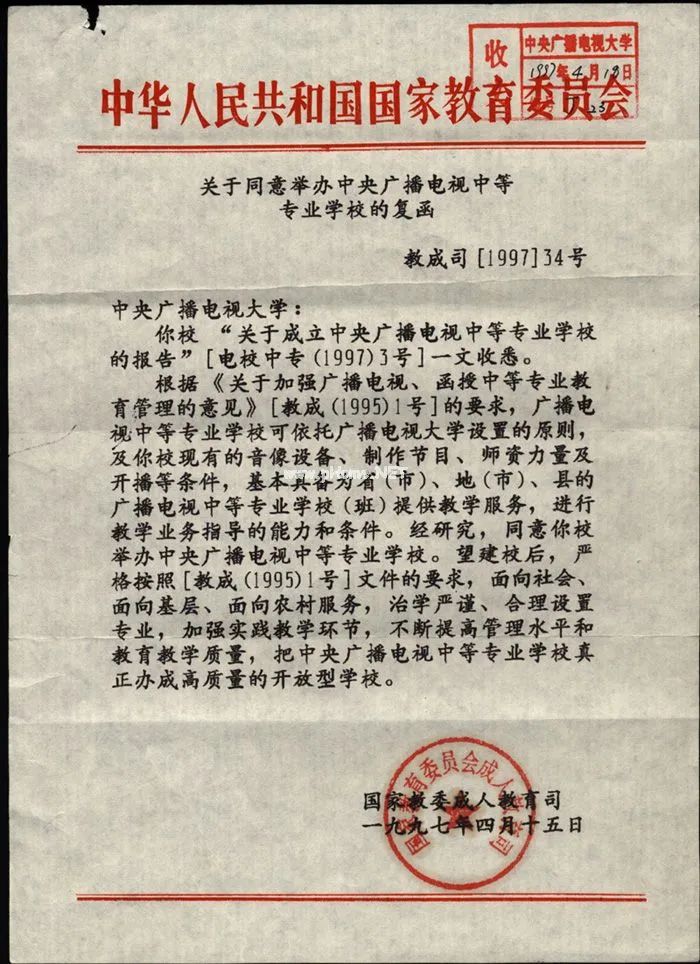 收 中央广播电视大学
1997年4月19日
23
中华人民共和国国家教育委员会
关于同意举办中央广播电视中等
专业学校的复函
教成司[1997]34号
中央广播电视大学：
你校“关于成立中央广播电视中等专业学校
的报告”[电校中专(1997)3号]一文收悉。
根据《关于加强广播电视、函授中等专业教
育管理的意见》[教成(1995)1号]的要求，广播电
视中等专业学校可依托广播电视大学设置的原则，
及你校现有的音像设备、制作节目、师资力量及
开播等条件，基本具备为省(市)、地(市)、县的
广播电视中等专业学校(班)提供教学服务，进行
教学业务指导的能力和条件。经研究，同意你校
举办中央广播电视中等专业学校。望建校后，严
格按照[教成(1995)1号]文件的要求，面向社会、
面向基层、面向农村服务，治学严谨、合理设置
专业，加强实践教学环节，不断提高管理水平和
教育教学质量，把中央广播电视中等专业学校真
正办成高质量的开放型学校。
国家教育委员会成人教育司
国家教委成人教育司
一九九七年四月十五日